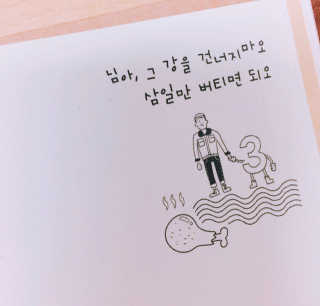 님아, 그 강을 건너지마오
삼일만 버티면 되오
3